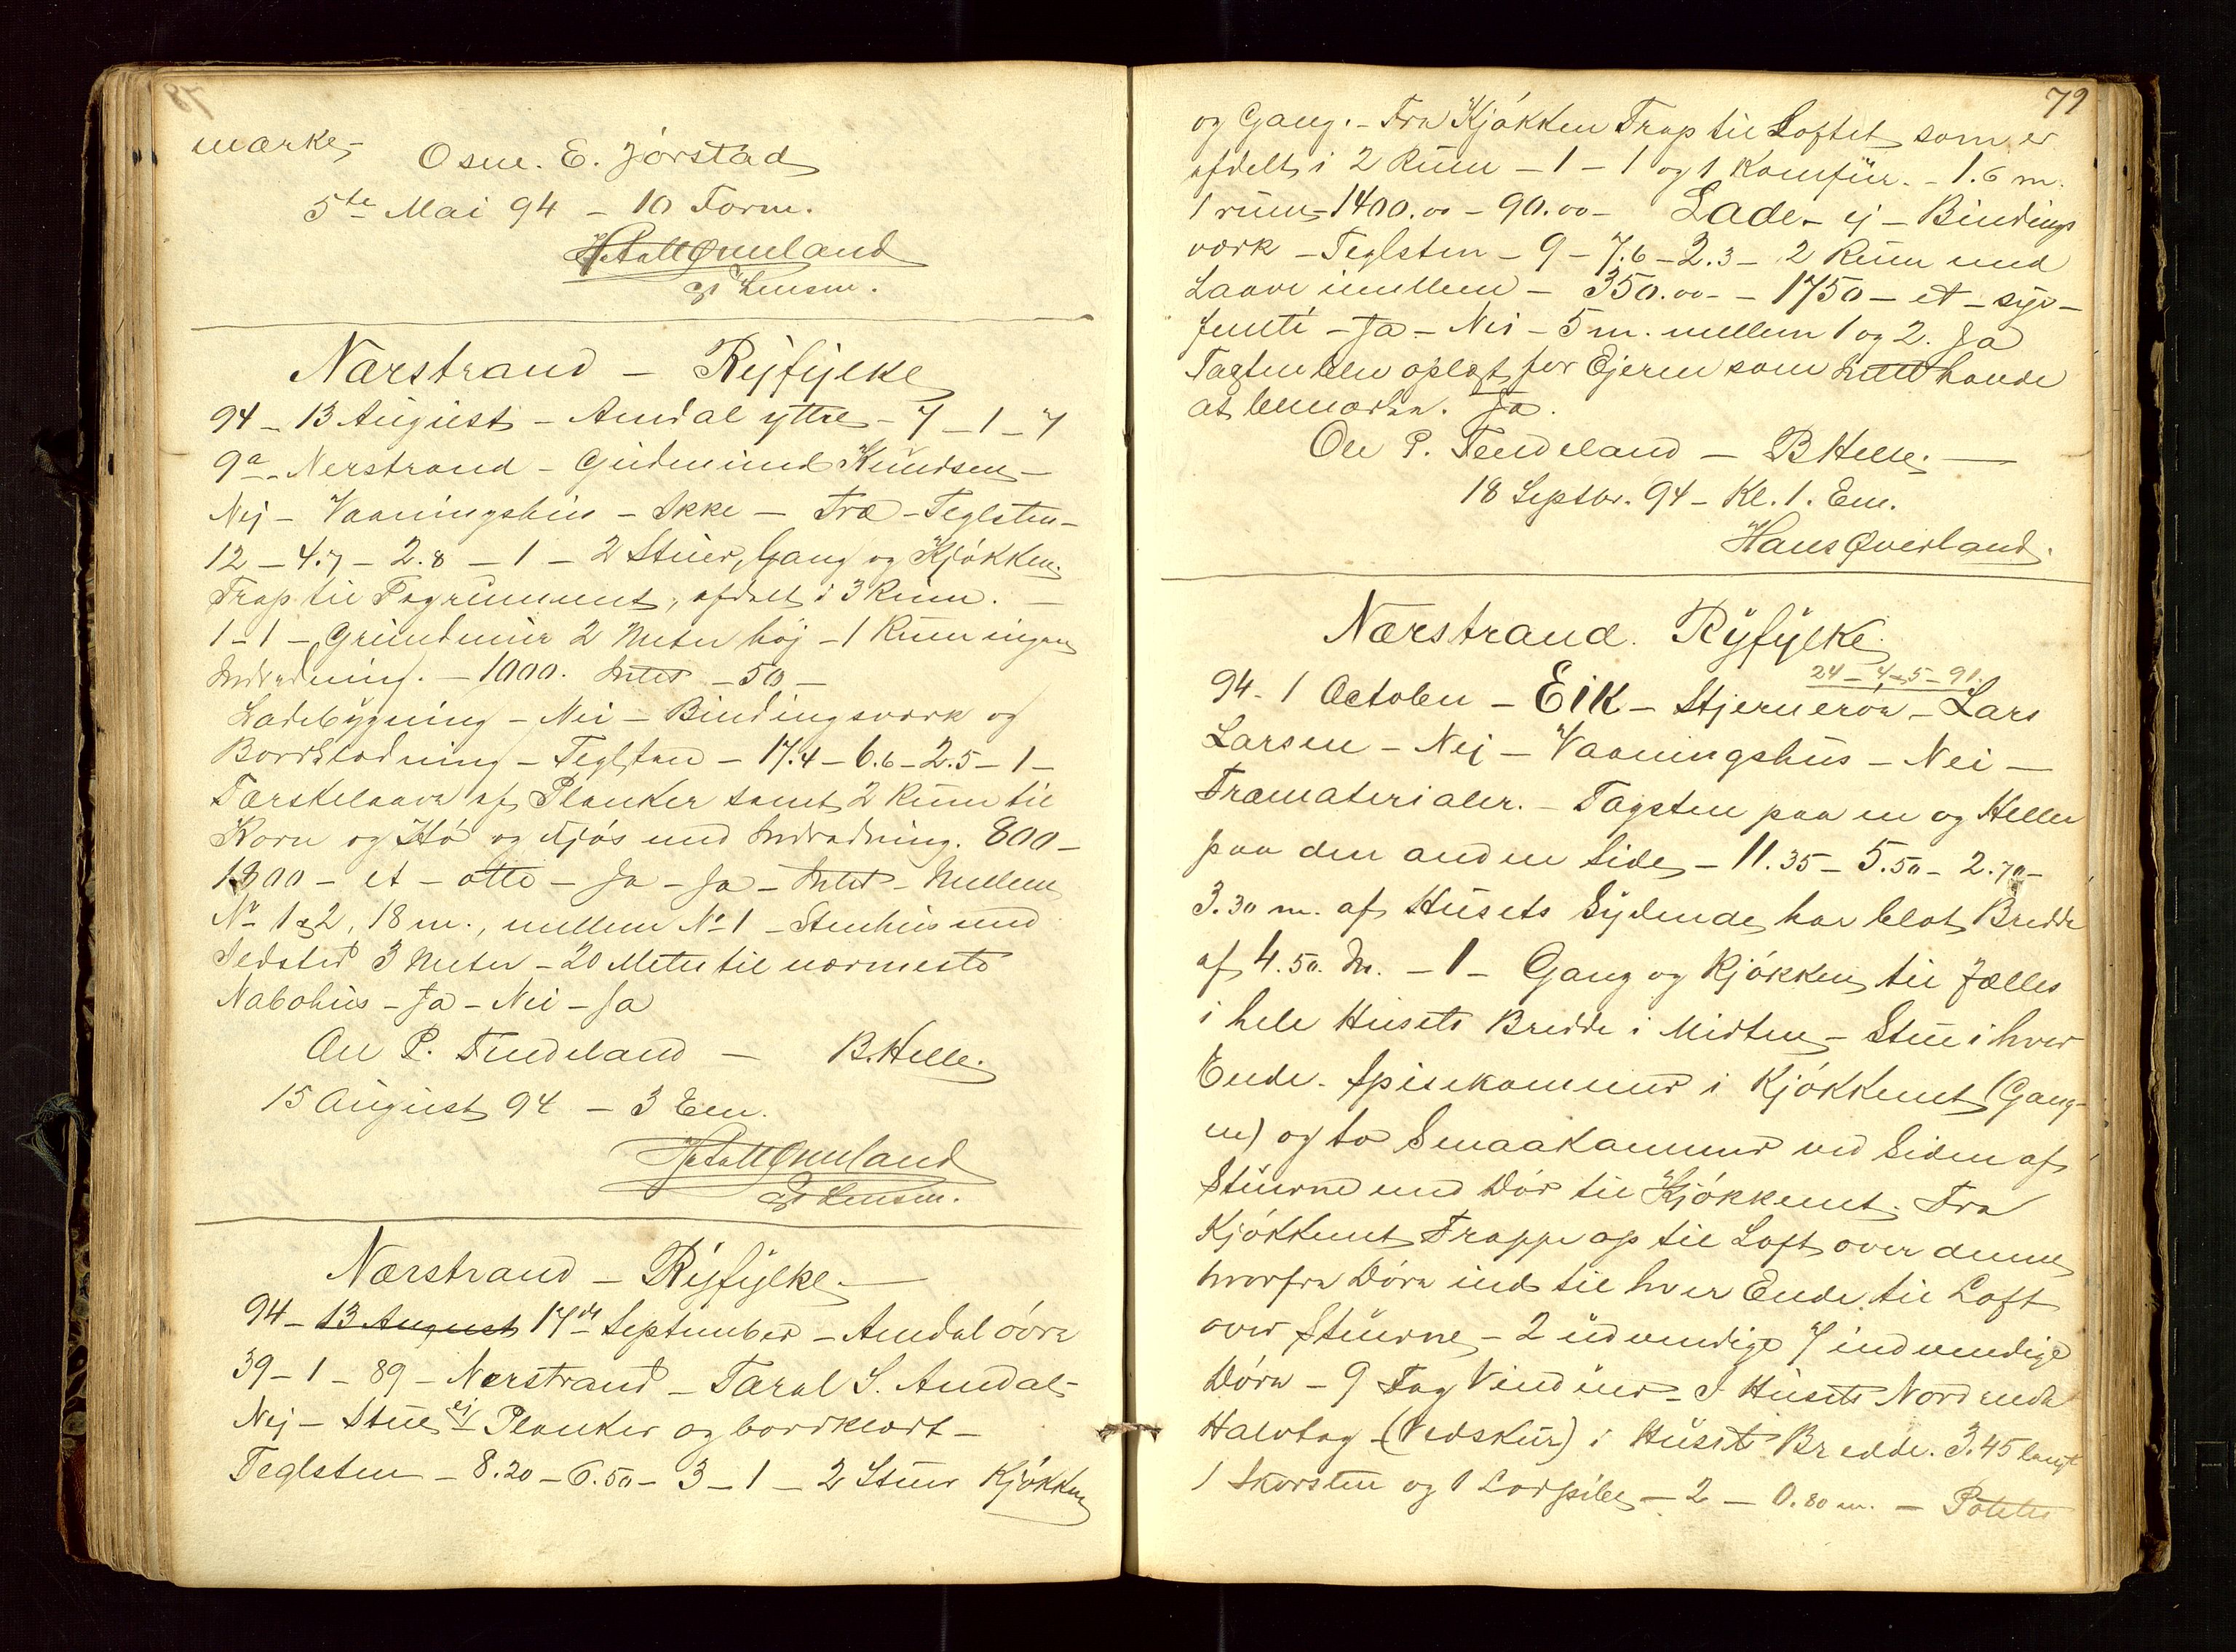 mærke,
Osm. E. Jørstad
5te Mai 94 – 10 Form.
Lensm.
Nærstrand – Ryfylke
94 – 13 August – Amdal yttre – 7 – 1 – 7
9a – Nerstrand – Gudmund Knudsen –
Nej – Vaaningshus – Ikke – Træ – Teglsten –
12 – 4.7 – 2.8 – 1 – 2 Stuer, Gang og Kjøkken.
Trap til Tagrummet, afdelt i 3 Rum. –
1 – 1 – Grundmur 2 Meter høj – 1 Rum ingen
Indredning. – 1000. Intet – 50 –
Ladebygning – Nei – Bindingsværk og
Bordklædning – Teglsten – 17.4 – 6.6 – 2.5 – 1 –
Tærskelaave af Planker samt 2 Rum til
Korn og Hø og Fjøs med Indredning. 800 –
1800 – et – otte – Ja – Ja – Intet – Mellem
No 1 & 2, 18 m., mellem No 1 – Stenhus med
Ildsted 3 Meter – 20 Meter til nærmeste
Nabohus – Ja – Nei – Ja
Ole P. Tendeland – B. Helle.
15 August 94 – 3 Em.
Lensm.
Nærstrand – Ryfylke. –
94 – 13 August 17de September – Amdal øvre
39 – 1 – 89 – Nerstrand – Taral S. Amdal –
Nej – Stue ej Planker og bordklædt –
Teglsten – 8.20 – 6.50 – 3 – 1 – 2 Stuer Kjøkken
79
og Gang. – Fra Kjøkken Trap til Loftet som er
afdelt i 2 Rum – 1 – 1 og 1 Komfur. – 1.6 m.
1 rum – 1400.00 – 90.00 – Lade – ej – Bindings
værk – Teglsten – 9 – 7.6 – 2.3 – 2 Rum med
Laave imellem – 350.00 – – 1750 – et – syv –
femti – Ja – Nei – 5 m. mellem 1 og 2. Ja
Taxten blev oplæst for Ejeren som Intet havde
at bemærke. Ja.
Ole P. Tendeland – B Helle. –
18 Septbr. 94 – Kl. 1. Em.
Hans Øverland.
Nærstrand. Ryfylke.
24 – 4 – 5 – 91.
94 – 1 October – Eik – Stjernerøen – Lars
Larsen – Nej – Vaaningshus – Nei –
Træmaterialer. – Tagsten paa en og Heller
paa den anden Side – 11.35 – 5.50 – 2.70 –
3.30 m. af Husets Sydende har blot Bredde
af 4.50. M. – 1 – Gang og Kjøkken til fælles
i hele Husets Bredde i Midten – Stue i hver
Ende. Spisekammer i Kjøkkenet (Gang-
en) og to Smaakammer ved Siden af
Stuerne med Dør til Kjøkkenet. Fra
Kjøkkenet Trappe op til Loft over denne
hvorfra Døre ind til hver Ende til Loft
over Stuerne – 2 udvendige 7 indvendige
Døre – 9 Fag Vinduer – I Husets Nordende
Halvtag (Vedskur) i Husets Bredde. 3.45 langt
1 Skorsten og 1 Lodpibe – 2 – 0.80 m. – Potete